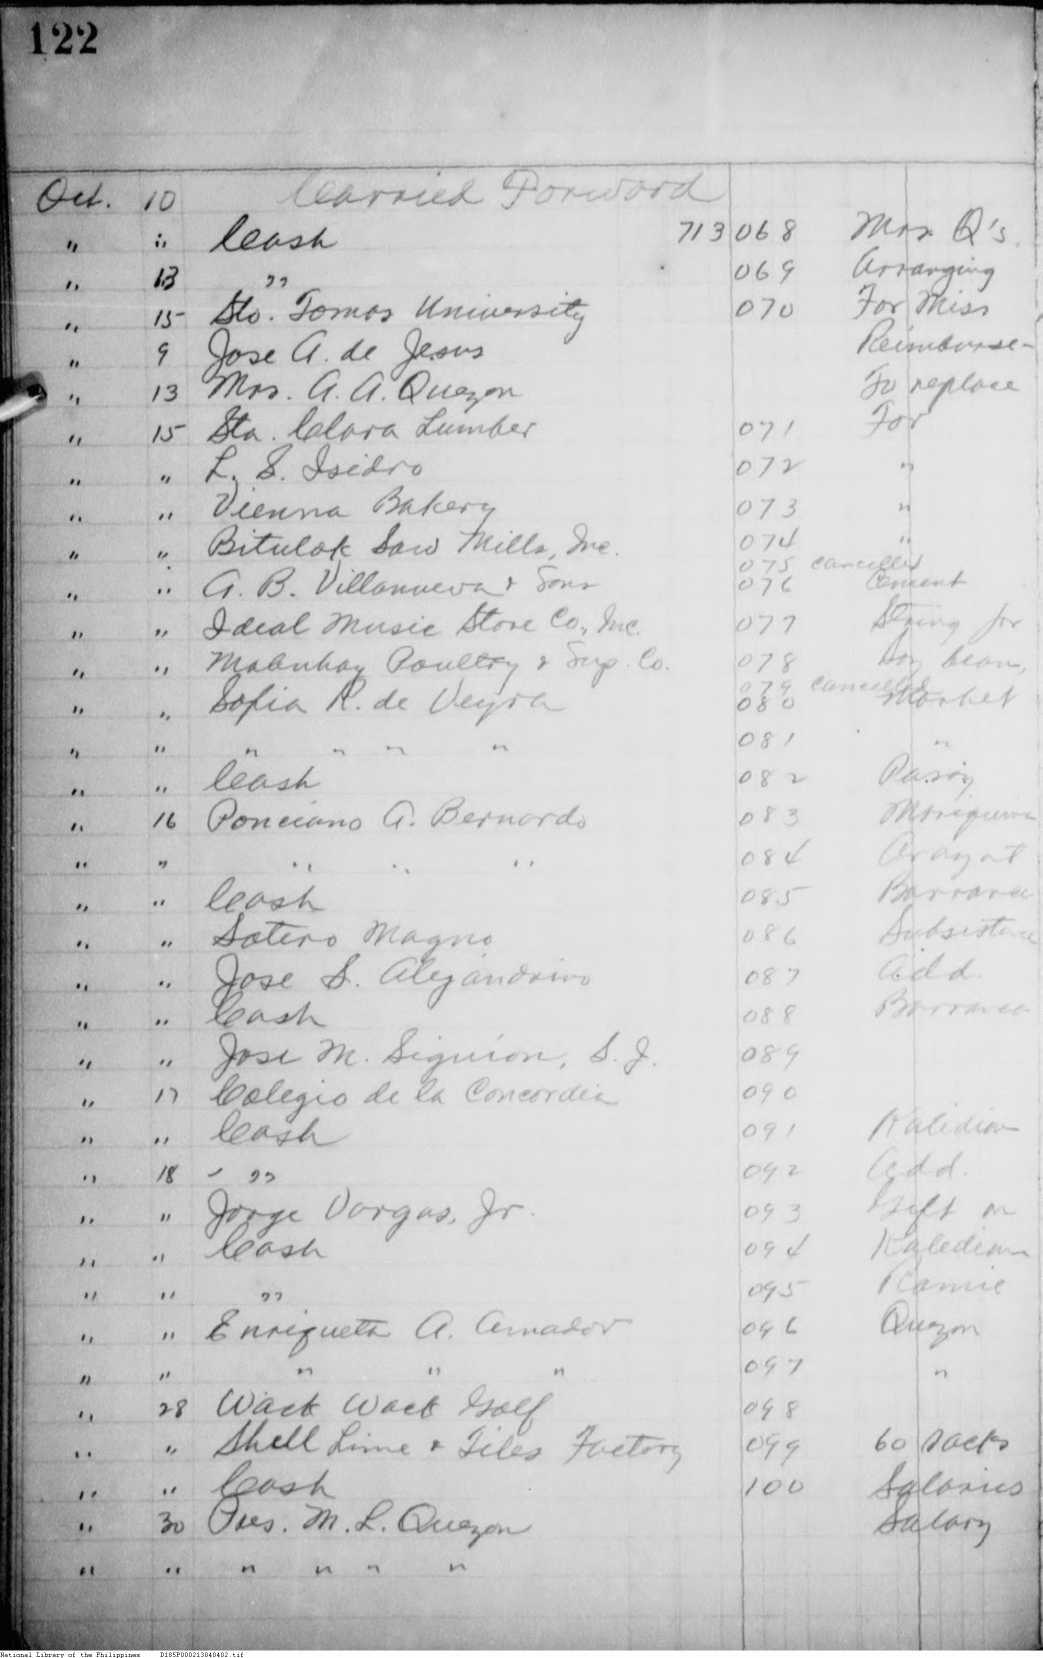 122
Oct. 10 Carried Forward
" " Cash 713 068 Mrs Q's
" 13 " 069 Arranging
" 15 Sto. Tomas University 070 For Miss
" 9 Jose A. de Jesus Reimburse-
" 13 Mrs. A. A. Quezon To replace
" 15 Sta. Clara Lumber 071 For
" " L. S. Isidro 072 "
" " Vienna Bakery 073 "
" " Bitulok Saw Mills, Inc. 074 "
075 cancelled
" " A. B. Villanueva & Sons 076 Cement
" " Ideal Music Store Co., Inc. 077 String for
" " Mabuhay Poultry & Sup. Co. 078 Soy bean,
079 cancelled
" " Sofia R. de Veyra 080 Market
" " " " " " 081 "
" " Cash 082 Pasig
" 16 Ponciano A. Bernardo 083 Mariquina
" " " " " 084 Arayat
" " Cash 085 Barranca
" " Sotero Magno 086 Subsistence
" " Jose S. Alejandrino 087 Add.
" " Cash 088 Barranca
" " Jose M. Siguion, S. J. 089
" 17 Colegio de la Concordia 090
" " Cash 091
" 18 " 092 Add.
" " Jorge Vargas, Jr. 093 Gift on
" " Cash 094
" " " 095 Ramie
" " Enriqueta A. Amador 096 Quezon
" " " " " 097 "
" 28 Wack Wack Golf 098
" " Shell Lime & Tiles Factory 099 60 sacks
" " Cash 100 Salaries
" 30 Pres. M. L. Quezon Salary
" " " " " "
National Library of the Philippines D185P000213040402.tif